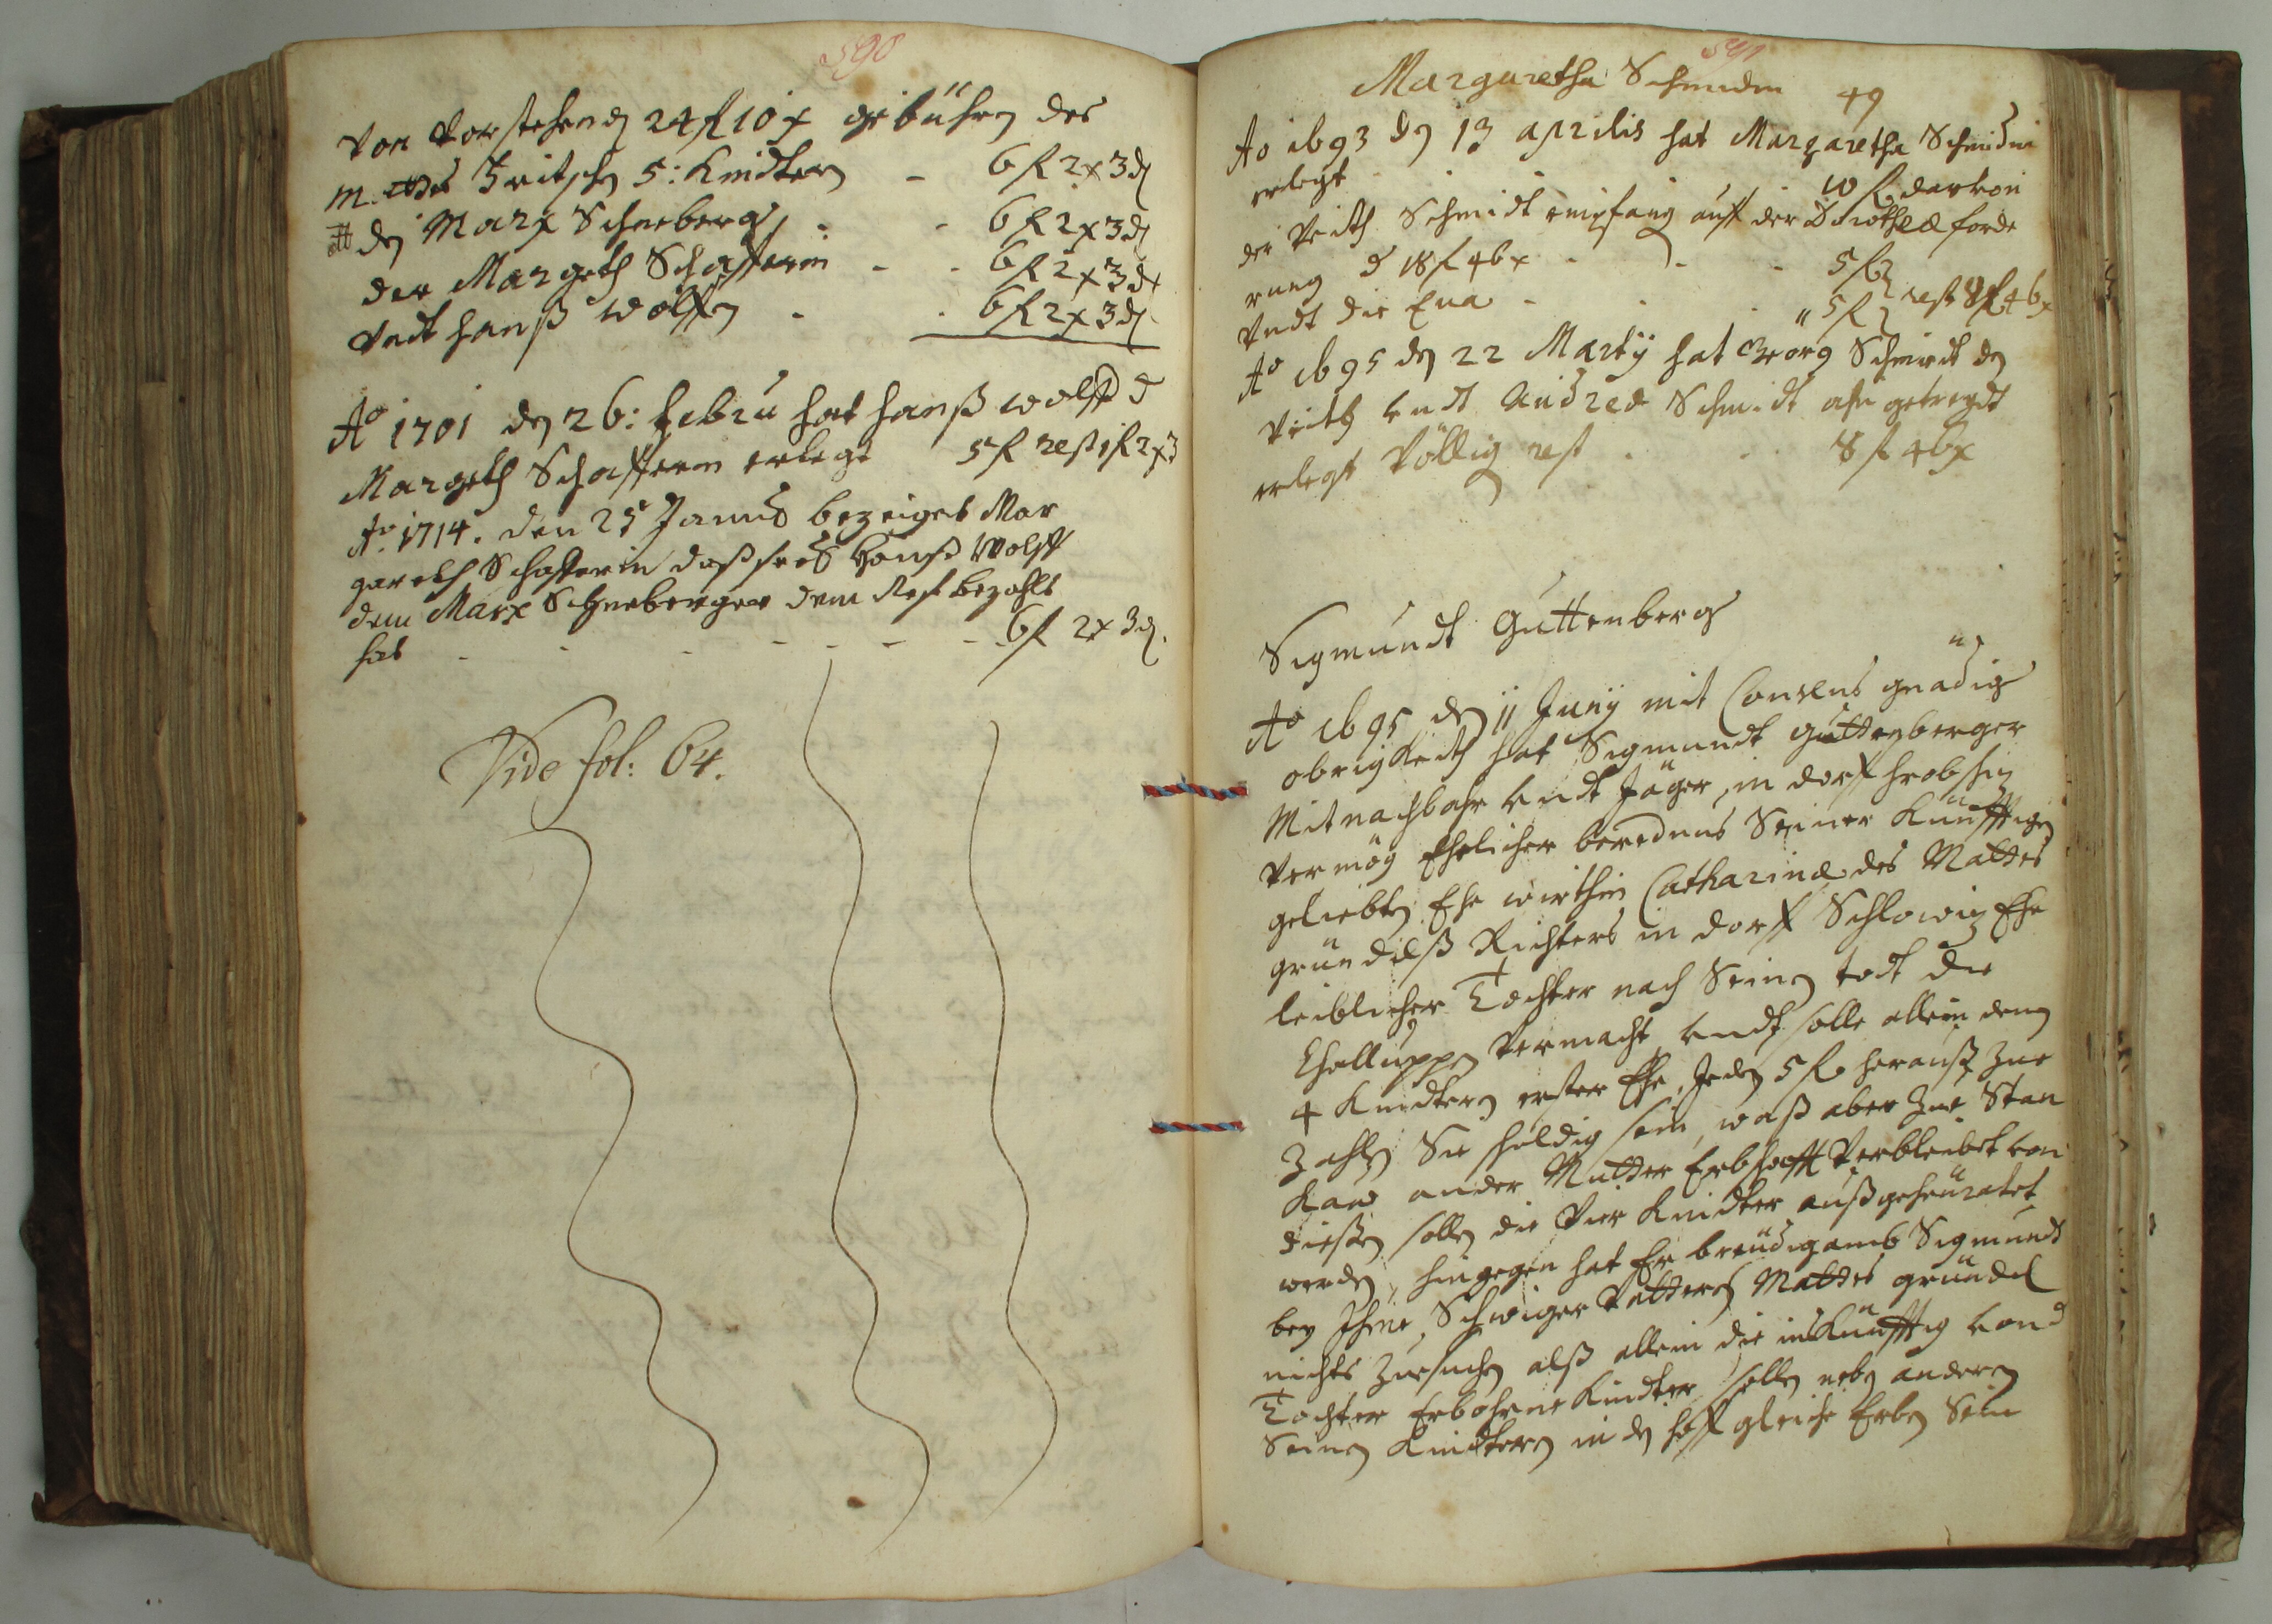 590
Von Vorstehend 24 fl 10 x gebühren des
Fritschen 5: Kindtern - 6 fl 2 x 3 d
den Marx Schneberger - - 6 fl 2 x 3 d
der Margeth Schafferin - - 6 fl 2 x 3 d
Vndt Hanß Wolffen - - 6 fl 2 x 3 d
Ao 1701 den 26: Febru hat Hanß Wolff d
Margeth Schafferin erlegt 5 fl rest 1 fl 2 x 3
Ao. 1714. den 25 Januŏ bezeiget Mar
gareth Schafferin daß Hanß Wolff
dem Marx Schneberger dem Rest bezahlt
hab - - - - - - - 6 fl 2 x 3 d.
Vide fol: 64.
591
Margaretha Schmidin 49
Ao 1693 den 13 aprilis hat Margaretha Schmidin
erlegt - - - 10 fl darvon
der Veith Schmidt empfang auff der Dorothea forde
rung d 18 fl 46 x - - - 5 fl
Vndt die Eua - - - 5 fl rest 8 fl 46 x
Ao 1695 den 22 Martij hat Georg Schmidt den
Veith vndt Andrea Schmidt ahn getreydt
erlegt Völlig rest - - - 8 fl 46 x
Sigmundt Guttenberg
Ao 1695 den 11 Junij mit Consens gnädig
obrigkeith hat Sigmundt Guttenberger
Mitnachbahr vndt Jäger, in dorff
Vermög Ehelicher berednus Seiner Künfftigen
geliebten Ehe wirthin Catharina des Mattes
gründelß Richters in dorff Schlowitz Ehe
leiblicher Tochter nach Seinen todt die
Challuppen Vermacht, vndt solle allein denen
4 Kindtern erster Ehe, Jeden 5 fl herauß Zue
Zahlen Sie schuldig sein, waß aber Zue Stan
Kaw ander Mutter Erbschafft Verbleibet von
dießen sollen die Vier Kindter außgeheüratet
werden, hingegen hat Er breüdigamb Sigmundt
bey Ihme Schwiger Vattern Mattes gründel
nichts Zuesuchen alß allein die ins Künfftig von d
Tochter Erbohrne Kindter sollen neben anderen
Seinen Kindtern in den hoff gleiche Erben Sein